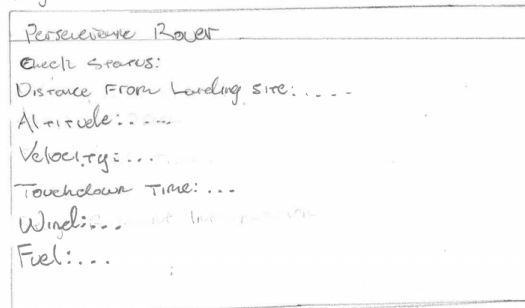 Perseverance Rover
Check Status:
Distance From Landing site:....
Altitude:.....
Velocity:...
Touchdown Time:...
Wind:...
Fuel:...